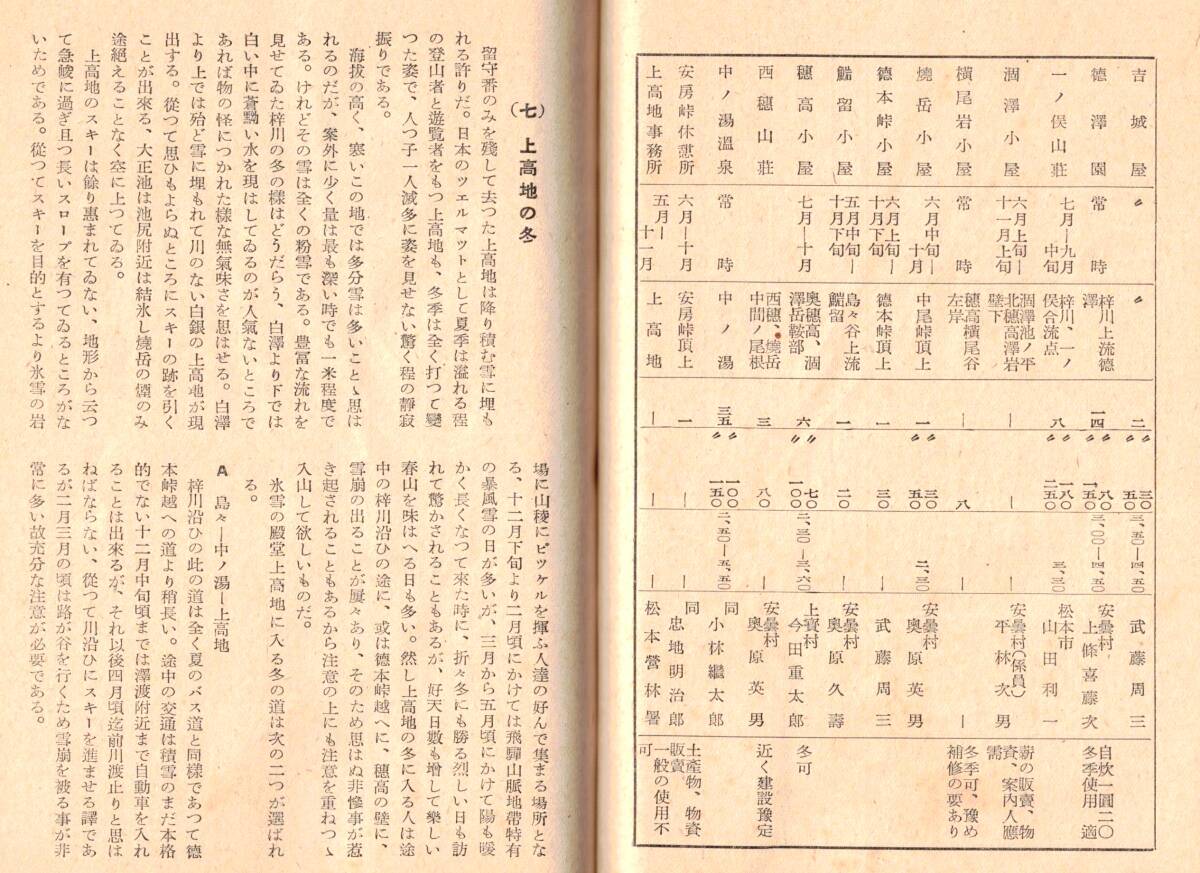 吉城屋
〃
〃
二〃
三〇
五〇
三、五〇―四、五〇
武藤周三
德澤園
常時
梓川上流德
澤
一四〃
八〇
一五〇
三、〇〇―四、五〇
安曇村
上條喜藤次
自炊一圓二〇
冬季使用適
一ノ俣山莊
七月―九月
中旬
梓川、一ノ
俣合流点
八〃
一八〇
二五〇
三、三〇
松本市
山田利一
涸澤小屋
六月上旬―
十一月上旬
涸澤池ノ平
北穗高澤岩
壁下
―
―
―
安曇村(係員)
平林次男
薪の販賣、物
資、案内人應
需
橫尾岩小屋
常時
穗高橫尾谷
左岸
―
八
―
―
冬季可、豫め
補修の要あり
燒岳小屋
六月中旬―
十月
中尾峠頂上
一〃
三〇
五〇
二、三〇
安曇村
奧原英男
德本峠小屋
六月上旬―
十月下旬
德本峠頂上
一
三〇
―
武藤周三
鯎留小屋
五月中旬―
十月下旬
島々谷上流
鯎留
一
二〇
―
安曇村
奧原久壽
穗高小屋
七月―十月
奧穗高、涸
澤岳鞍部
六〃
七〇
一〇〇
二、三〇―三、六〇
上寶村
今田重太郎
冬可
西穗山莊
西穗、燒岳
中間ノ尾根
三
八〇
―
安曇村
奧原英男
近く建設豫定
中ノ湯溫泉
常時
中ノ湯
三五〃
一〇〇
一五〇
二、五〇―五、五〇
同
小林繼太郎
安房峠休憩所
六月―十月
安房峠頂上
一
―
―
同
忠地明治郎
土產物、物資
販賣
上高地事務所
五月―
十一月
上高地
―
―
―
松本營林署
一般の使用不
可
(七) 上高地の冬
留守番のみを殘して去つた上高地は降り積む雪に埋も
れる許りだ。日本のツエルマツトとして夏季は溢れる程
の登山者と遊覽者をもつ上高地も、冬季は全く打つて變
つた姿で、人つ子一人滅多に姿を見せない驚く程の靜寂
振りである。
海拔の高く、寒いこの地では多分雪は多いことゝ思は
れるのだが、案外に少く量は最も深い時でも一米程度で
ある。けれどその雪は全くの粉雪である。豊富な流れを
見せてゐた梓川の冬の樣はどうだらう、白澤より下では
白い中に蒼黝い水を現はしてゐるのが人氣ないところで
あれば物の怪につかれた樣な無氣味さを思はせる。白澤
より上では殆ど雪に埋もれて川のない白銀の上高地が現
出する。從つて思ひもよらぬところにスキーの跡を引く
ことが出來る、大正池は池尻附近は結氷し燒岳の煙のみ
途絕えることなく空に上つてゐる。
上高地のスキーは餘り惠まれてゐない、地形から云つ
て急峻に過ぎ且つ長いスロープを有つてゐるところがな
いためである。從つてスキーを目的とするより氷雪の岩
場に山稜にピツケルを揮ふ人達の好んで集まる場所とな
る、十二月下旬より二月頃にかけては飛驒山脈地帶特有
の暴風雪の日が多いが、三月から五月頃にかけて陽も暖
かく長くなつて來た時に、折々冬にも勝る烈しい日も訪
れて驚かされることもあるが、好天日數も增して樂しい
春山を味はへる日も多い。然し上高地の冬に入る人は途
中の梓川沿ひの途に、或は德本峠越へに、穗高の壁に、
雪崩の出ることが屢々あり、そのため思はぬ非慘事が惹
き起されることもあるから注意の上にも注意を重ねつゝ
入山して欲しいものだ。
氷雪の殿堂上高地に入る冬の道は次の二つが選ばれ
る。
A 島々―中ノ湯―上高地
梓川沿ひの此の道は全く夏のバス道と同樣であつて德
本峠越への道より稍長い。途中の交通は積雪のまだ本格
的でない十二月中旬頃までは澤渡附近まで自動車を入れ
ることは出來るが、それ以後四月頃迄前川渡止りと思は
ねばならない、從つて川沿ひにスキーを進ませる譯であ
るが二月三月の頃は路が谷を行くため雪崩を被る事が非
常に多い故充分な注意が必要である。